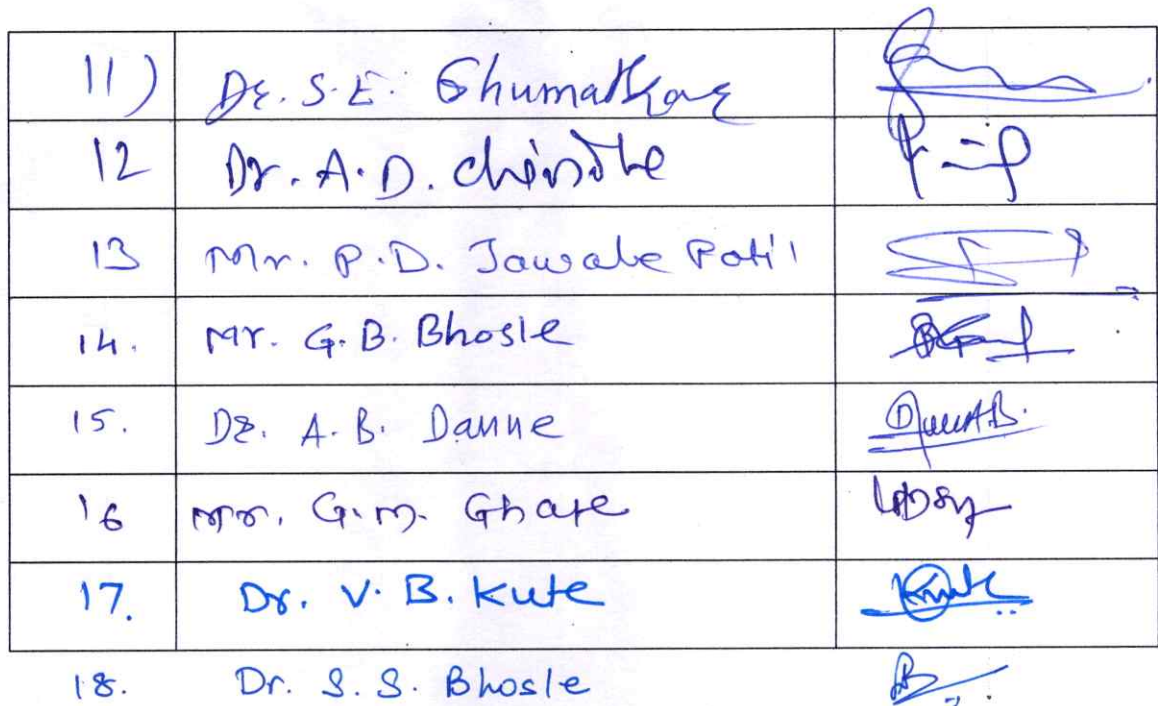 11) Dr. S.E. Ghumatkar
12 Dr. A.D. Chindhe
13 Mr. P.D. Jawale Patil
14. Mr. G.B. Bhosle
15. Dr. A.B. Danne
16 Mr. G.M. Ghate
17. Dr. V.B. Kute Kute
18. Dr. S.S. Bhosle